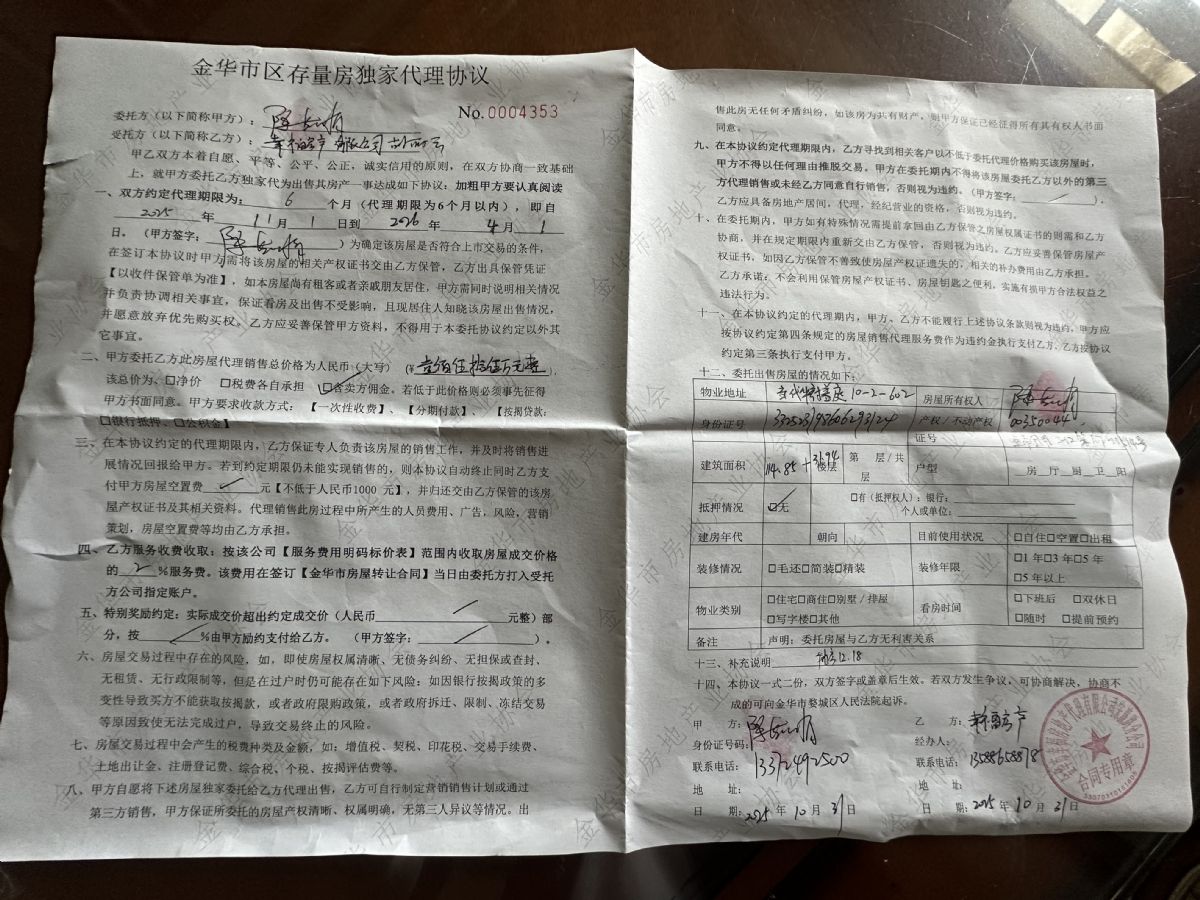 金华市区存量房独家代理协议
No.0004353
委托方（以下简称甲方）：
受托方（以下简称乙方）：
甲乙双方本着自愿、平等、公平、公正，诚实信用的原则，在双方协商一致基础
上，就甲方委托乙方独家代为出售其房产一事达成如下协议：加粗甲方要认真阅读
一、双方约定代理期限为：6个月（代理期限为6个月以内），即自
2025年11月1日到2026年4月1
日。（甲方签字：）为确定该房屋是否符合上市交易的条件，
在签订本协议时甲方需将该房屋的相关产权证书交由乙方保管，乙方出具保管凭证
【以收件保管单为准】，如本房屋尚有租客或者亲戚朋友居住，甲方需同时说明相关情况
并负责协调相关事宜，保证看房及出售不受影响，且现居住人知晓该房屋出售情况，
并愿意放弃优先购买权。乙方应妥善保管甲方资料，不得用于本委托协议约定以外其
它事宜。
二、甲方委托乙方此房屋代理销售总价格为人民币（大写）
该总价为、□净价 □税费各自承担 □含卖方佣金。若低于此价格则必须事先征得
甲方书面同意。甲方要求收款方式：【一次性收费】、【分期付款】、【按揭贷款：
□银行抵押、□公积金】
三、在本协议约定的代理期限内，乙方保证专人负责该房屋的销售工作，并及时将销售进
展情况回报给甲方。若到约定期限仍未能实现销售的，则本协议自动终止同时乙方支
付甲方房屋空置费元【不低于人民币1000 元】，并归还交由乙方保管的该房
屋产权证书及其相关资料。代理销售此房过程中所产生的人员费用、广告，风险，营销
策划，房屋空置费等均由乙方承担。
四、乙方服务收费收取：按该公司【服务费用明码标价表】范围内收取房屋成交价格
的2%服务费。该费用在签订【金华市房屋转让合同】当日由委托方打入受托
方公司指定账户。
五、特别奖励约定：实际成交价超出约定成交价（人民币元整）部
分，按%由甲方励约支付给乙方。（甲方签字：）。
六、房屋交易过程中存在的风险，如，即使房屋权属清晰、无债务纠纷、无担保或查封、
无租赁、无行政限制等，但是在过户时仍可能存在如下风险：如因银行按揭政策的多
变性导致买方不能获取按揭款，或者政府限购政策，或者政府拆迁、限制、冻结交易
等原因致使无法完成过户，导致交易终止的风险。
七、房屋交易过程中会产生的税费种类及金额，如：增值税、契税、印花税、交易手续费、
土地出让金、注册登记费、综合税、个税、按揭评估费等。
八、甲方自愿将下述房屋独家委托给乙方代理出售，乙方可自行制定营销销售计划或通过
第三方销售，甲方保证所委托的房屋产权清晰、权属明确，无第三人异议等情况。出
售此房无任何矛盾纠纷，如该房为共有财产，则甲方保证已经征得所有其有权人书面
同意。
九、在本协议约定代理期限内，乙方寻找到相关客户以不低于委托代理价格购买该房屋时，
甲方不得以任何理由推脱交易。甲方在委托期内不得将该房屋委托乙方以外的第三
方代理销售或未经乙方同意自行销售，否则视为违约。（甲方签字：）。
乙方应具备房地产居间，代理，经纪营业的资格，否则视为违约。
十、在委托期内，甲方如有特殊情况需提前拿回由乙方保管之房屋权属证书的则需和乙方
协商，并在规定期限内重新交由乙方保管，否则视为违约。乙方应妥善保管房屋产
权证书，如因乙方保管不善致使房屋产权证遗失的，相关的补办费用由乙方承担。
乙方承诺：不会利用保管房屋产权证书、房屋钥匙之便利，实施有损甲方合法权益之
违法行为。
十一、在本协议约定的代理期内，甲方、乙方不能履行上述协议条款则视为违约，甲方应
按协议约定第四条规定的房屋销售代理服务费作为违约金执行支付乙方，乙方按协议
约定第三条执行支付甲方。
十二、委托出售房屋的情况如下：
物业地址 10-2-602 房屋所有权人
身份证号 产权／不动产权证号 00350044
建筑面积 114.85+36.94 楼层 第 层/共 层 户型 房_厅_厨_卫_阳
抵押情况 □无 □有（抵押权人）：银行：
个人或单位：
建房年代 朝向 目前使用状况 □自住□空置□出租
装修情况 □毛还□简装□精装 装修年限 □1年□3年□5年
□5年以上
物业类别 □住宅□商住□别墅／排屋
□写字楼□其他 看房时间 □下班后 □双休日
□随时 □提前预约
备注 声明：委托房屋与乙方无利害关系
十三、补充说明 12.18
十四、本协议一式二份，双方签字或盖章后生效。若双方发生争议，可协商解决，协商不
成的可向金华市婺城区人民法院起诉。
甲 方：
身份证号码：
联系电话：13312492500
地 址：
日 期：2025年10月31日
乙 方：幸福房产
经办人：
联系电话：13588658878
地 址：
日 期：2025年10月31日
合同专用章